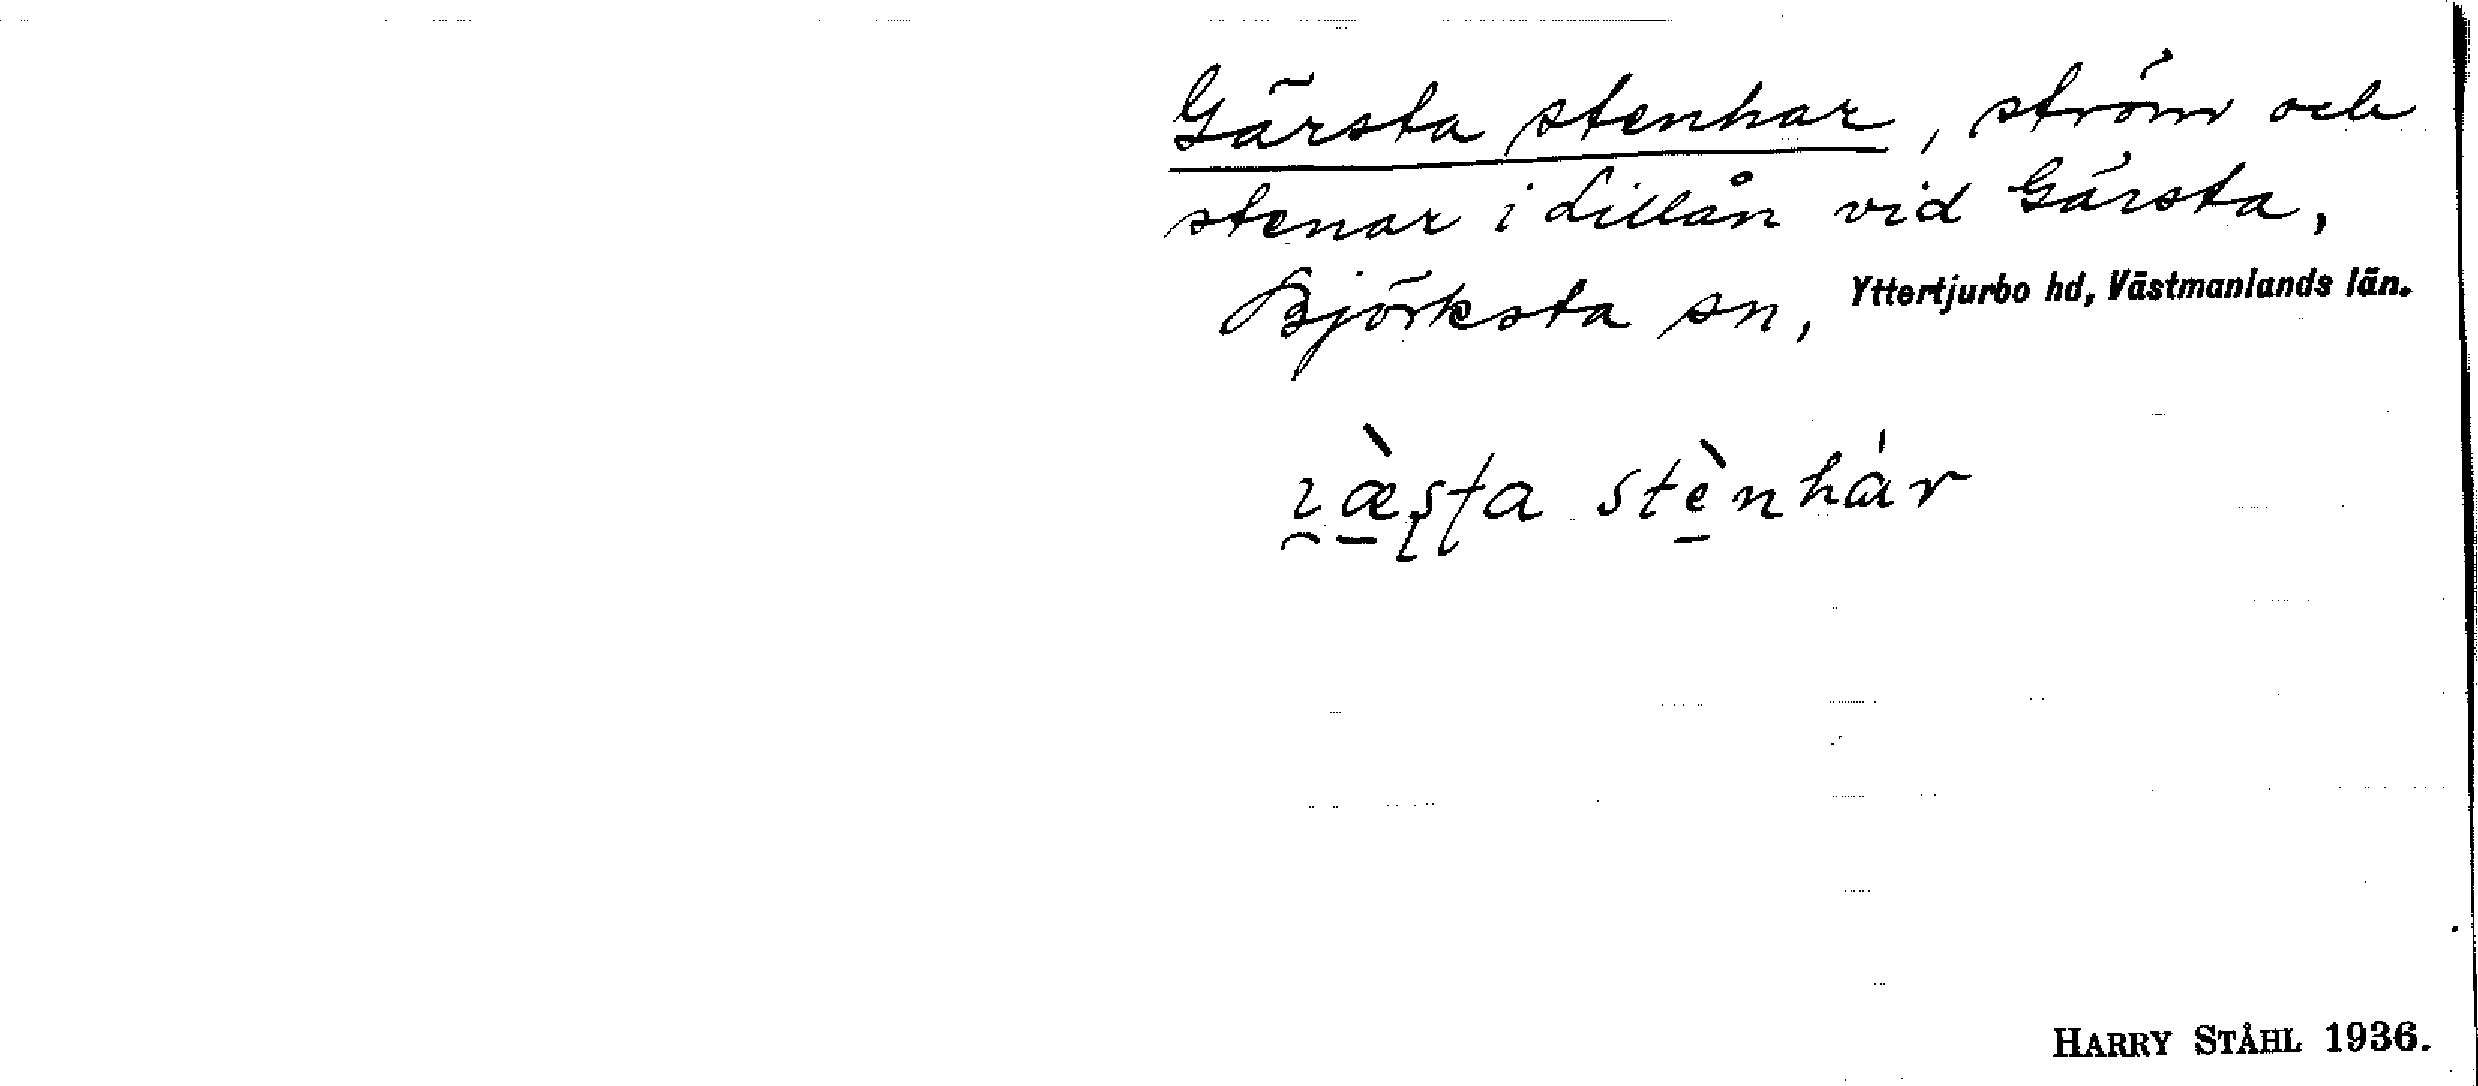 Gärsta stenhar, ström och
stenar i Lillån vid Gärsta,
Björksta sn, Yttertjurbo hd, Västmanlands län.
stènhár
HARRY STÅHL 1936.